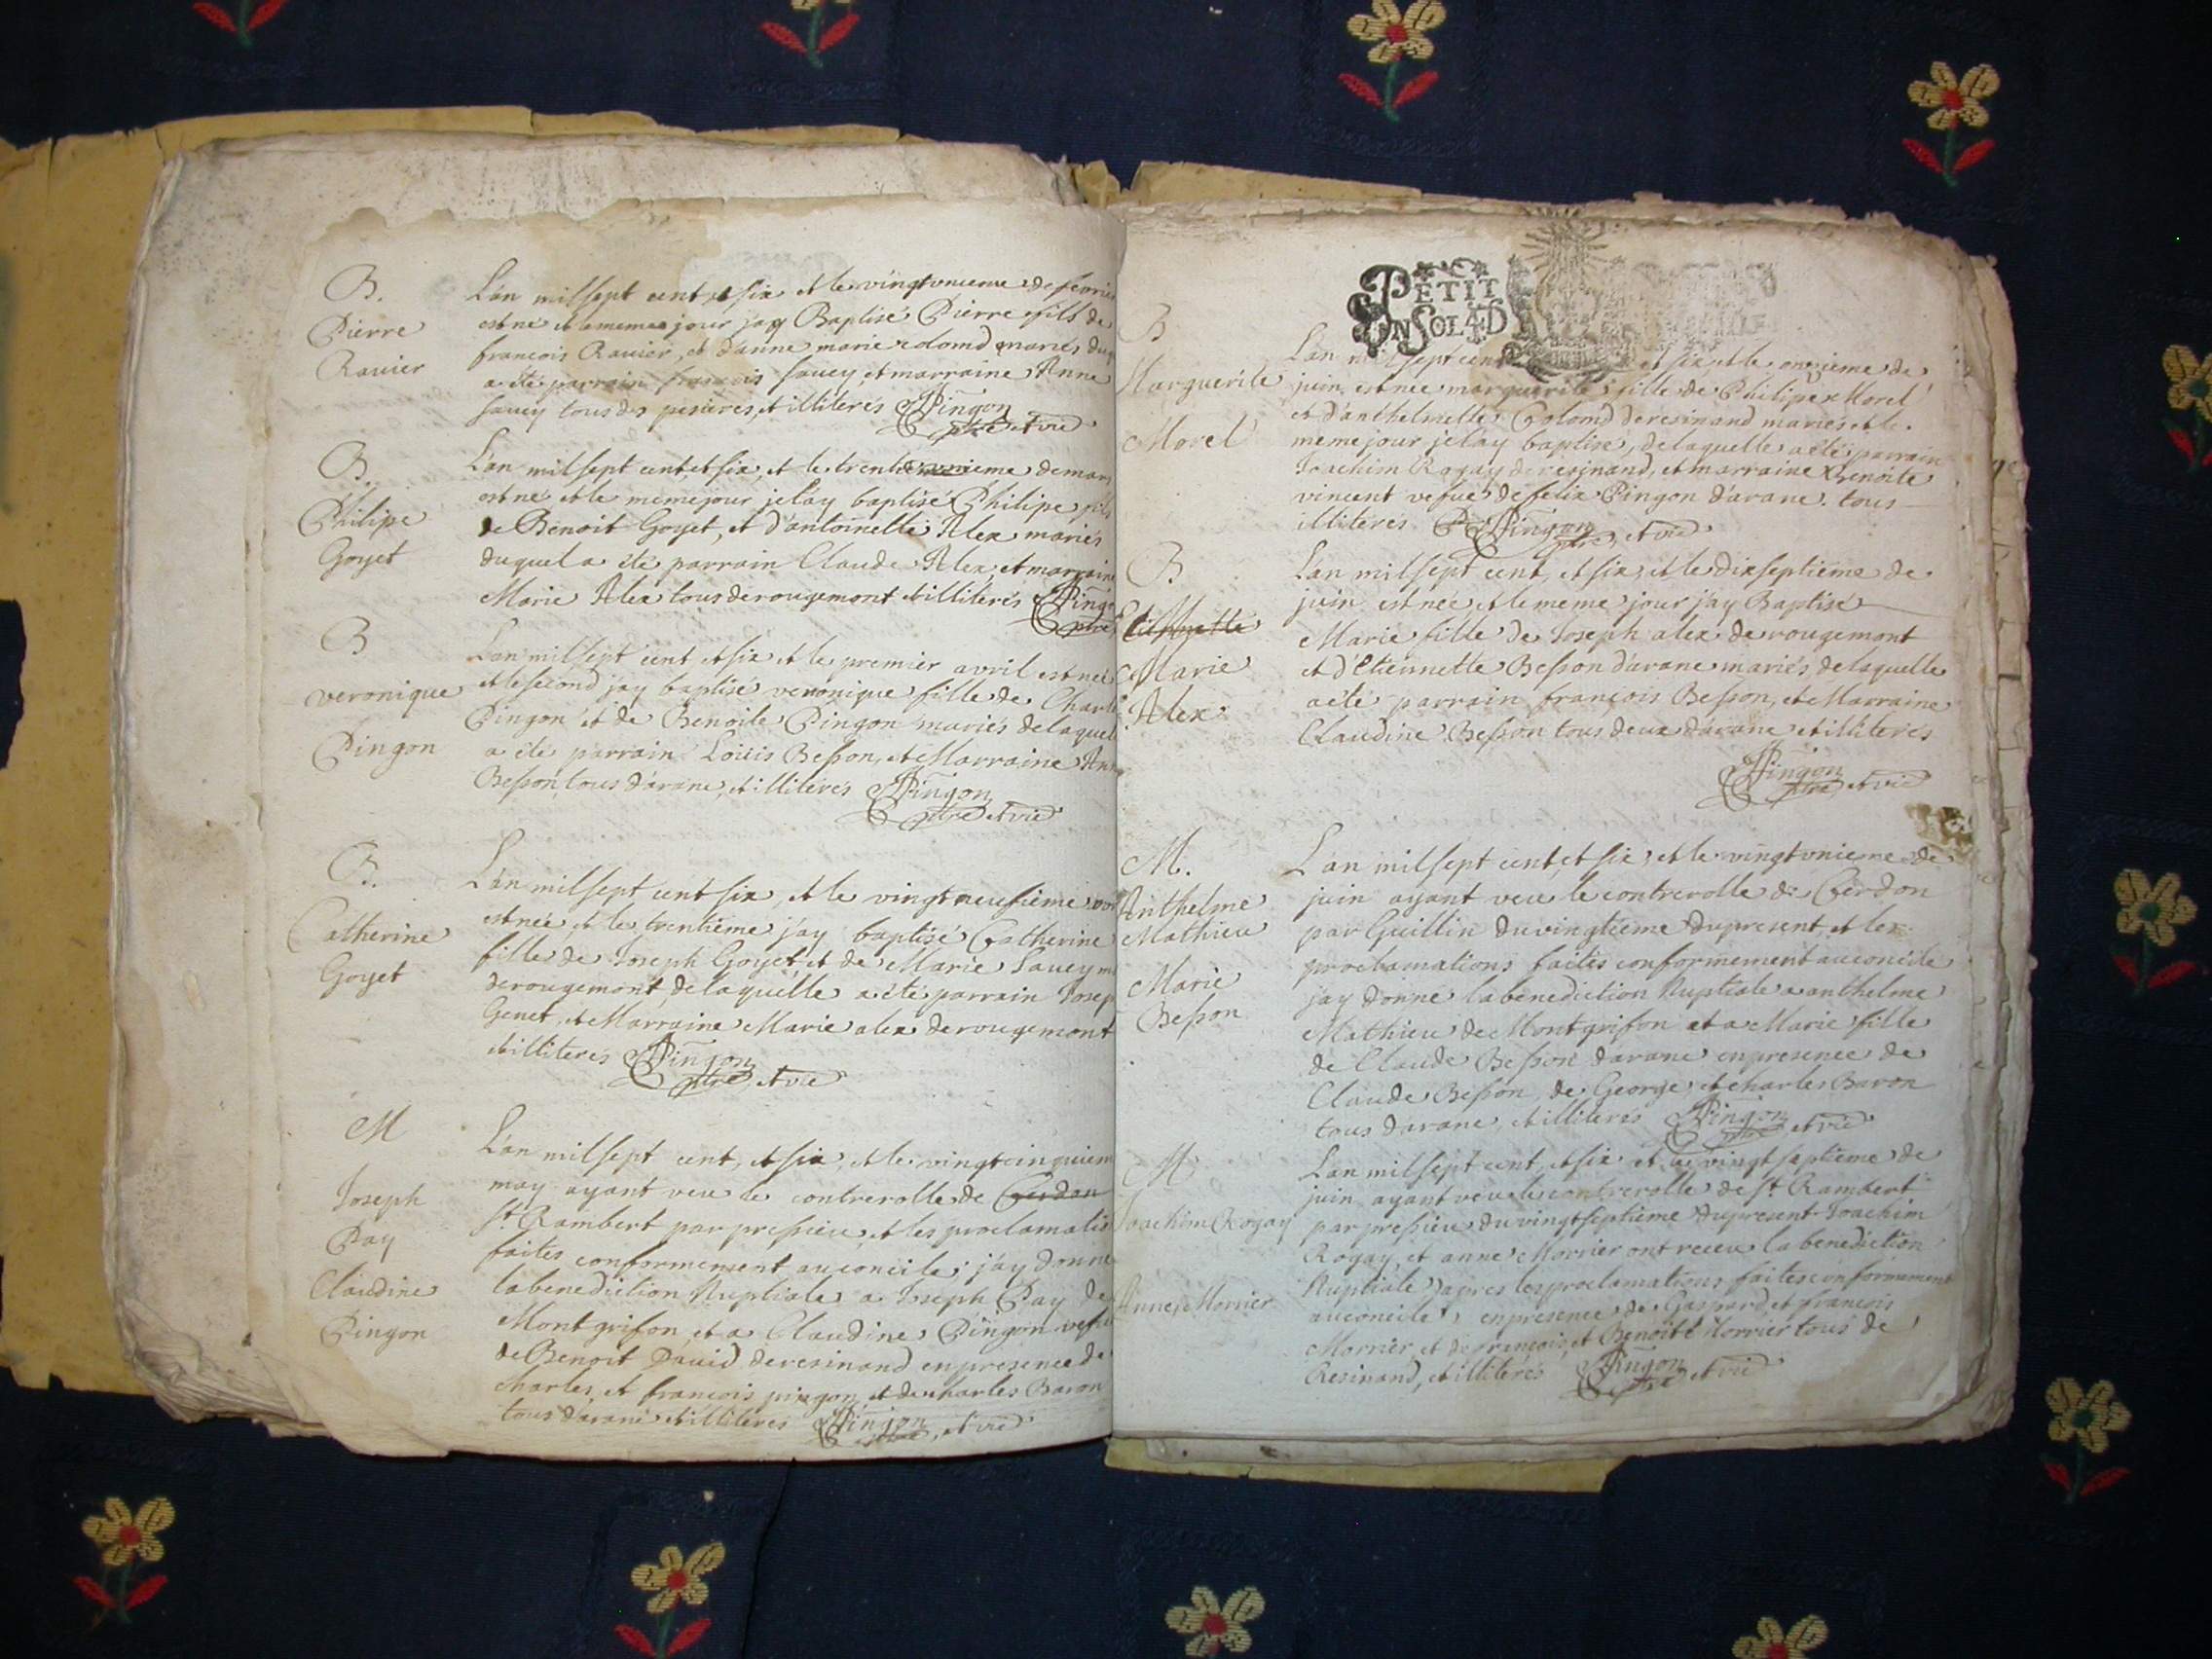 B.
Pierre
Ravier
L'an mil sept cent, et six et le vingtunieme de fevrier
est né et le meme jour j'ay Baptisé Pierre fils de
francois Ravier, et d'anne marie colomd mariés
a été parrain francois Savey, et marraine Anne
Savey tous des pesieres, et illiterés Pingon
ptre et vic
B.
Philipe
Goyet
L'an mil sept cent, et six, et le trente unieme de mars
est né et le meme jour je l'ay baptisé Philipe fils
de Benoit Goyet, et d'antoinette Alex mariés
duquel a été parrain Claude Alex, et marraine
Marie Alex tous de rougemont et illiterés Pingon
ptre
B
veronique
Pingon
L'an mil sept cent et six et le premier avril est née
et le second j'ay baptisé veronique fille de Charle
Pingon et de Benoite Pingon mariés de laquel
a été parrain Loüis Besson, et Marraine
Besson, tous d'arane, et illiterés Pingon
ptre et vic
B.
Catherine
Goyet
L'an mil sept cent six, et le vingt neufieme
est née et le trentieme j'ay baptisé Catherine
fille de Joseph Goyet et de Marie Savey
de rougemont de laquelle a été parrain Josep
Genet, et Marraine Marie alex de rougemont
et illiterés Pingon
ptre et vic
M
Joseph
Pay
Claudine
Pingon
L'an mil sept cent, et six, et le vingt cinquiem
may ayant veu le controrolle de Cerdon
St. Rambert par pressieu, et les proclamatio
faites conformement au concile, j'ay donné
la benediction Nuptiale a Joseph Pay de
Montgrifon, et a Claudine Pingon
de Benoit David de resinand en presence de
charles, et francois pingon, et de charles Baron
tous d'arane et illiterés Pingon
ptre, et vic
PETIT
UN SOL 4 D
B
Marguerite
Morel
L'an mil sept cent et six et le onzieme de
juin est née marguerite fille de Philipe Morel
et d'anthelmette Colomd de resinand mariés et le
meme jour je l'ay baptisé, de laquelle a été parrain
Joachim Rogay de resinand, et marraine Benoite
vincent vefue de felix Pingon d'arane. tous
illiterés Pingon
ptre, et vic
B
Marie
Alex
L'an mil sept cent, et six, et le dixseptieme de
juin est née et le meme jour j'ay Baptisé
Marie fille de Joseph alex de rougemont
et d'Etiennette Besson d'arane mariés de laquelle
a été parrain françois Besson, et Marraine
Claudine Besson tous deux d'arane et illiterés
Pingon
ptre, et vic
M.
Anthelme
Mathieu
Marie
Besson
L'an mil sept cent, et six, et le vingtunieme de
juin ayant veu le controrolle de Cerdon
par Guillin du vingtieme du present, et les
proclamations faites conformement au concile
j'ay donné la benediction Nuptiale a anthelme
Mathieu de Montgrifon et a Marie fille
de Claude Besson d'arane en presence de
Claude Besson, de George, et charles Baron
tous d'arane, et illiterés Pingon
ptre, et vic
M
Joachim Rogay
Anne Morrier
L'an mil sept cent, et six et le vingt septieme de
juin ayant veu le controrolle de St. Rambert
par pressieu du vingtseptieme du present Joachim
Rogay, et anne Morrier ont receu la benediction
Nuptiale apres les proclamations faites conformement
au concile, en presence de Gaspard, et francois
Morrier, et de francois, et Benoit Morrier tous de
Resinand, et illiterés Pingon
ptre et vic